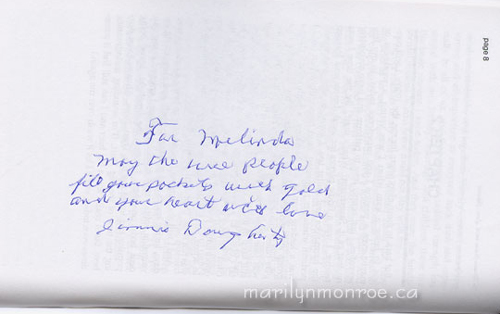 page 8
For Melinda
May the wee people
fill your pockets with Gold
and your heart with love
Jimmie Dougherty
marilynmonroe.ca